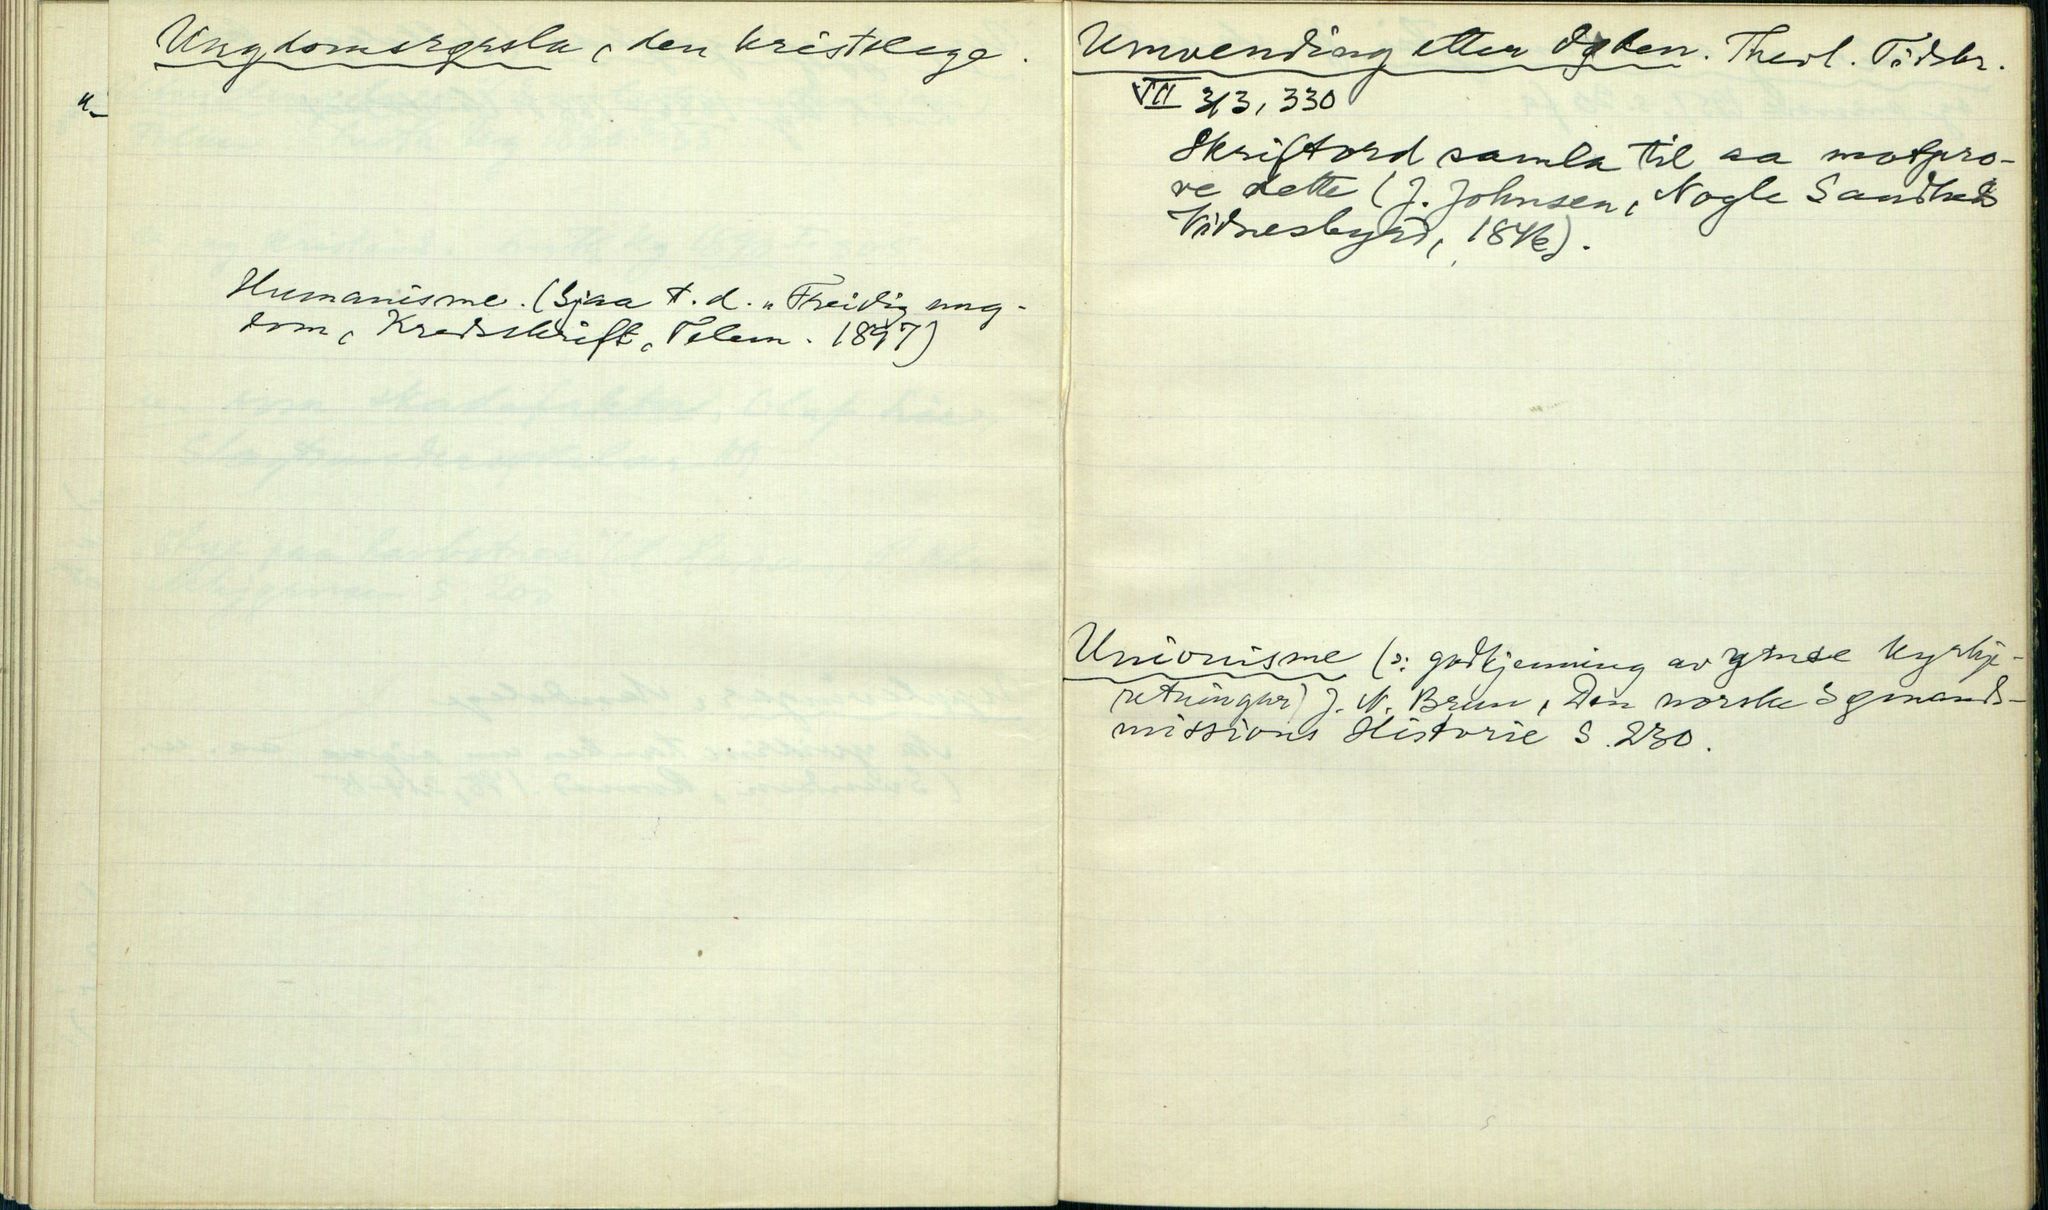 Ungdomsrørsla, den kristelege.
Humanisme. (Sjaa t. d. "Freidig ung-
dom, Kredsskrift, Telem. 1897)
Umvending etter døden. Theol. Tidskr.
VII 313, 330
Skriftord samla til aa motpro-
ve dette (J. Johnsen, Nogle Sandheds
Vidnesbyrd, 1846).
Unionisme (ɔ: godkjenning av ymse kyrkje-
retningar) J. N. Brun, Den norske Sømands-
missions Historie S. 230.